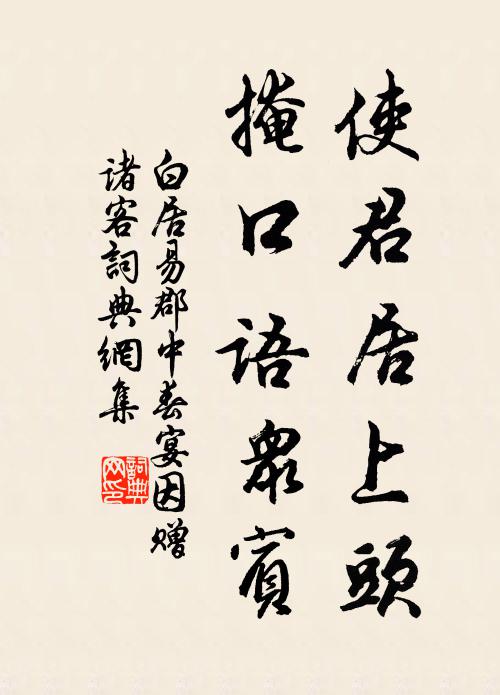 使君居上頭
掩口語眾賓
白居易郡中春宴因贈
諸客詞典網集
詞典
网印